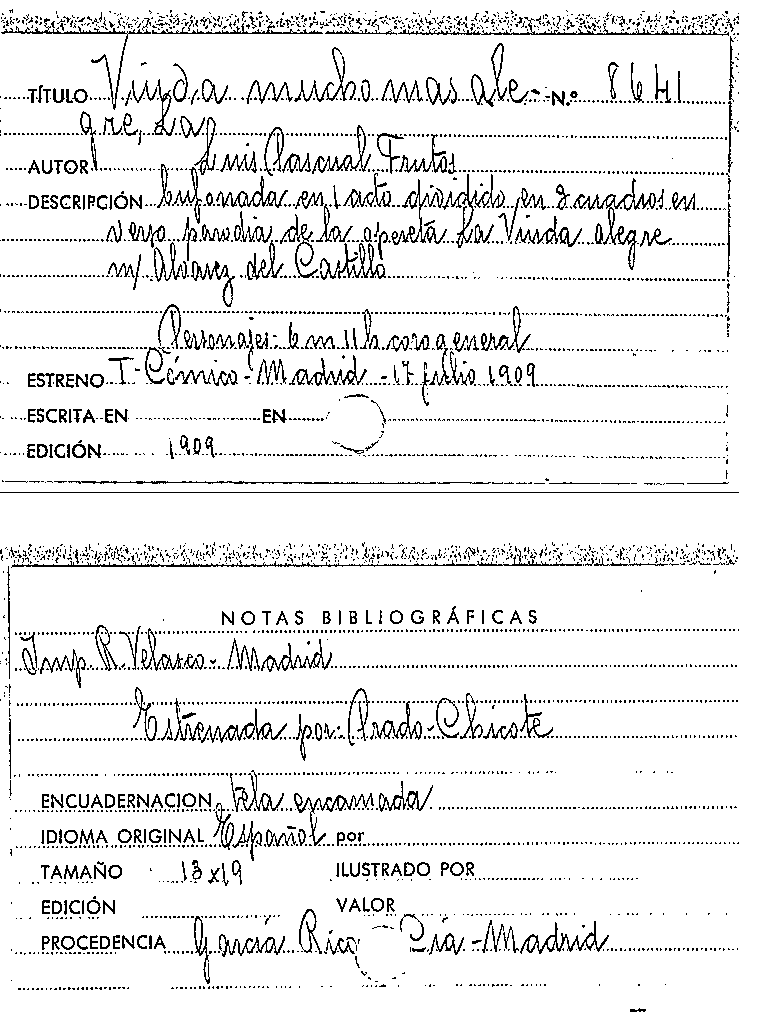 TÍTULO Viuda mucho mas ale- N.º 8641
gre, La
AUTOR Luis Pascual Frutos
DESCRIPCIÓN bufonada en 1 acto dividido en 2 cuadros en
verso parodia de la opereta La Viuda alegre
m/ Alvarez del Castillo
Personajes- 6 m 11 h coro general
ESTRENO T- Cómico- Madrid - 17 julio 1909
ESCRITA EN EN
EDICIÓN 1909
NOTAS BIBLIOGRÁFICAS
Imp. R. Velasco- Madrid
Estrenada por- Prado- Chicote
ENCUADERNACION tela encarnada
IDIOMA ORIGINAL Español por
TAMAÑO 13x19 ILUSTRADO POR
EDICIÓN VALOR
PROCEDENCIA García Rico Cía - Madrid